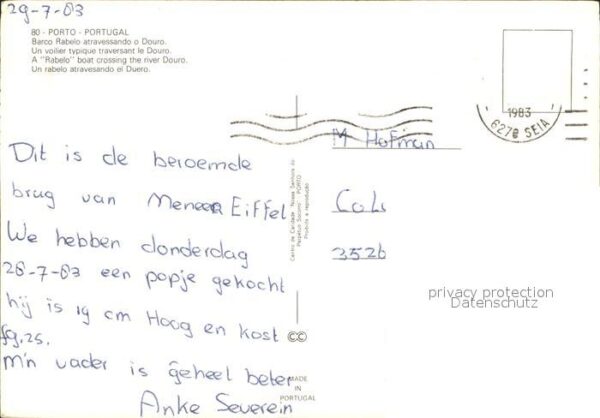 29-7-83
80 - PORTO - PORTUGAL
Barco Rabelo atravessando o Douro.
Un voilier typique traversant le Douro.
A "Rabelo" boat crossing the river Douro.
Un rabelo atravesando el Duero.
1983
6270 SEIA
Dit is de beroemde
brug van Meneer Eiffel
We hebben donderdag
28-7-83 een popje gekocht
hij is 19 cm Hoog en kost
fg,25.
m'n vader is geheel beter
Anke Severein
Centro de Caridade "Nossa Senhora do
Perpétuo Socorro" PORTO
Proibida a reprodução
M Hofman
3526
privacy protection
Datenschutz
CC
MADE
IN
PORTUGAL